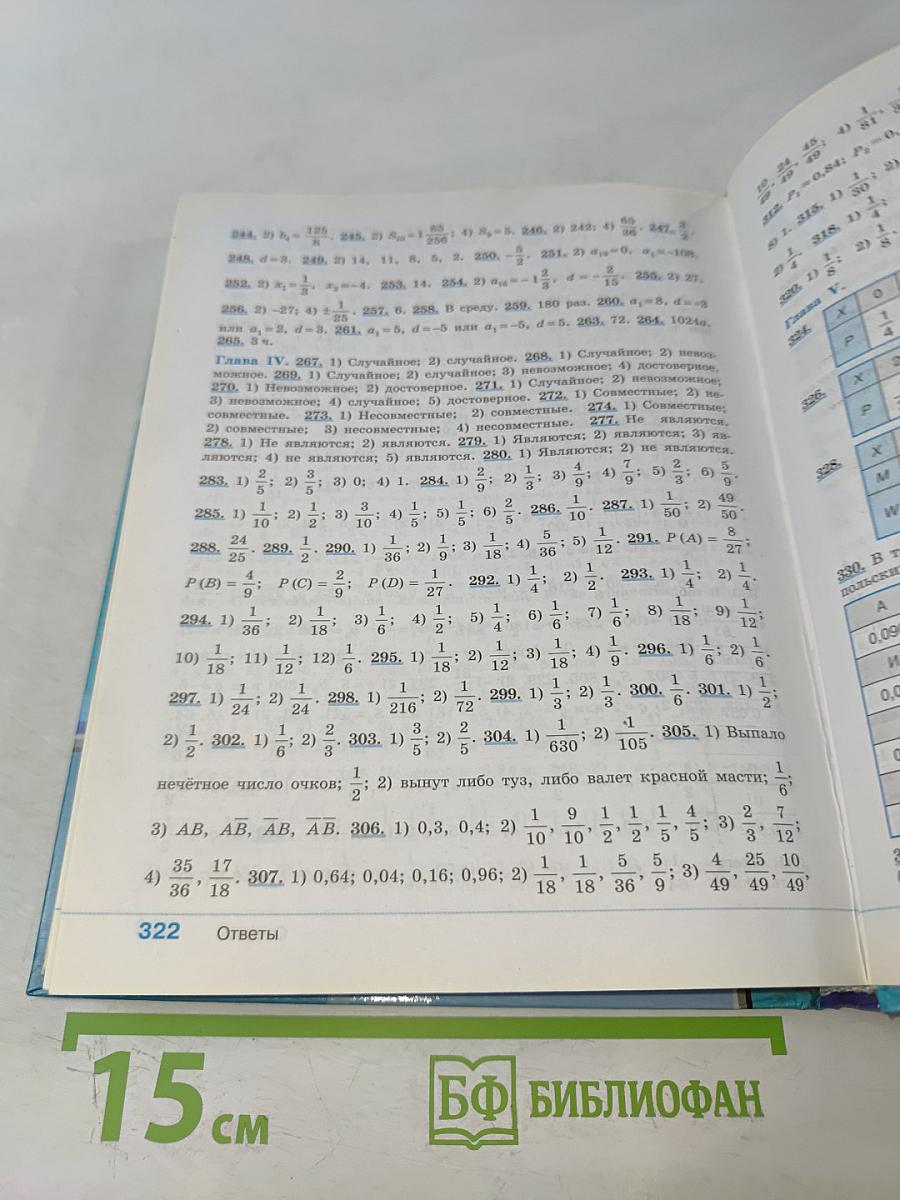 244. 2) b₄ = 125/8. 245. 2) S₁₀ = 1 85/256; 4) S₉ = 5. 246. 2) 242; 4) 65/36. 247. 3/2.
248. d = 3. 249. 2) 14, 11, 8, 5, 2. 250. −5/2. 251. 2) a₁₉ = 0, a₁ = −108.
252. 2) x₁ = 1/3, x₂ = −4. 253. 14. 254. 2) a₁₆ = −1 2/3, d = −2/15. 255. 2) 27.
256. 2) −27; 4) ±1/25. 257. 6. 258. В среду. 259. 180 раз. 260. a₁ = 8, d = −3
или a₁ = 2, d = 3. 261. a₁ = 5, d = −5 или a₁ = −5, d = 5. 263. 72. 264. 1024a.
265. 3 ч.
Глава IV. 267. 1) Случайное; 2) случайное. 268. 1) Случайное; 2) невоз-
можное. 269. 1) Случайное; 2) случайное; 3) невозможное; 4) достоверное.
270. 1) Невозможное; 2) достоверное. 271. 1) Случайное; 2) невозможное;
3) невозможное; 4) случайное; 5) достоверное. 272. 1) Совместные; 2) не-
совместные. 273. 1) Несовместные; 2) совместные. 274. 1) Совместные;
2) совместные; 3) несовместные; 4) несовместные. 277. Не являются.
278. 1) Не являются; 2) являются. 279. 1) Являются; 2) являются; 3) яв-
ляются; 4) не являются; 5) являются. 280. 1) Являются; 2) не являются.
283. 1) 2/5; 2) 3/5; 3) 0; 4) 1. 284. 1) 2/9; 2) 1/3; 3) 4/9; 4) 7/9; 5) 2/3; 6) 5/9.
285. 1) 1/10; 2) 1/2; 3) 3/10; 4) 1/5; 5) 1/5; 6) 2/5. 286. 1/10. 287. 1) 1/50; 2) 49/50.
288. 24/25. 289. 1/2. 290. 1) 1/36; 2) 1/9; 3) 1/18; 4) 5/36; 5) 1/12. 291. P(A) = 8/27;
P(B) = 4/9; P(C) = 2/9; P(D) = 1/27. 292. 1) 1/4; 2) 1/2. 293. 1) 1/4; 2) 1/4.
294. 1) 1/36; 2) 1/18; 3) 1/6; 4) 1/2; 5) 1/4; 6) 1/6; 7) 1/6; 8) 1/18; 9) 1/12;
10) 1/18; 11) 1/12; 12) 1/6. 295. 1) 1/18; 2) 1/12; 3) 1/18; 4) 1/9. 296. 1) 1/6; 2) 1/6.
297. 1) 1/24; 2) 1/24. 298. 1) 1/216; 2) 1/72. 299. 1) 1/3; 2) 1/3. 300. 1/6. 301. 1) 1/2;
2) 1/2. 302. 1) 1/6; 2) 2/3. 303. 1) 3/5; 2) 2/5. 304. 1) 1/630; 2) 1/105. 305. 1) Выпало
нечётное число очков; 1/2; 2) вынут либо туз, либо валет красной масти; 1/6;
3) AB, AB̅, A̅B, A̅B̅. 306. 1) 0,3, 0,4; 2) 1/10, 9/10, 1/2, 1/2, 1/5, 4/5; 3) 2/3, 7/12;
4) 35/36, 17/18. 307. 1) 0,64; 0,04; 0,16; 0,96; 2) 1/18, 1/18, 5/36, 5/9; 3) 4/49, 25/49, 10/49,
322 Ответы
10/49, 24/49, 45/49; 4) 1/81,
312. P₁ = 0,84; P₂ = 0,
3) 1. 315. 1) 1/30; 2)
2) 1/4. 318. 1) 1/4;
320. 1) 1/8; 2) 1/8.
Глава V.
324.
X 0
P 1/4
326.
X 2
P
328.
X
M
W
330. В т
польски
A
0,090
И
0,0
15 см
БФ БИБЛИОФАН